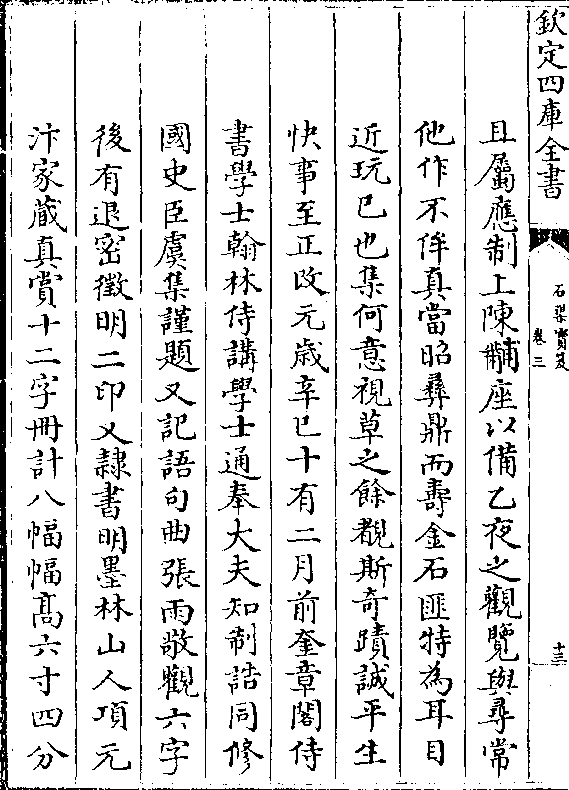 欽定四庫全書
石渠寳笈
卷三
十三
且屬應制上陳黼座以備乙夜之觀覽與尋常
他作不侔真當昭彛鼎而壽金石匪特為耳目
近玩已也集何意視草之餘覩斯奇蹟誠平生
快事至正改元歳辛巳十有二月前奎章閣侍
書學士翰林侍講學士通奉大夫知制誥同修
國史臣虞集謹題又記語句曲張雨敬觀六字
後有退密徵明二印又隷書明墨林山人項元
汴家蔵真賞十二字冊計八幅幅髙六寸四分